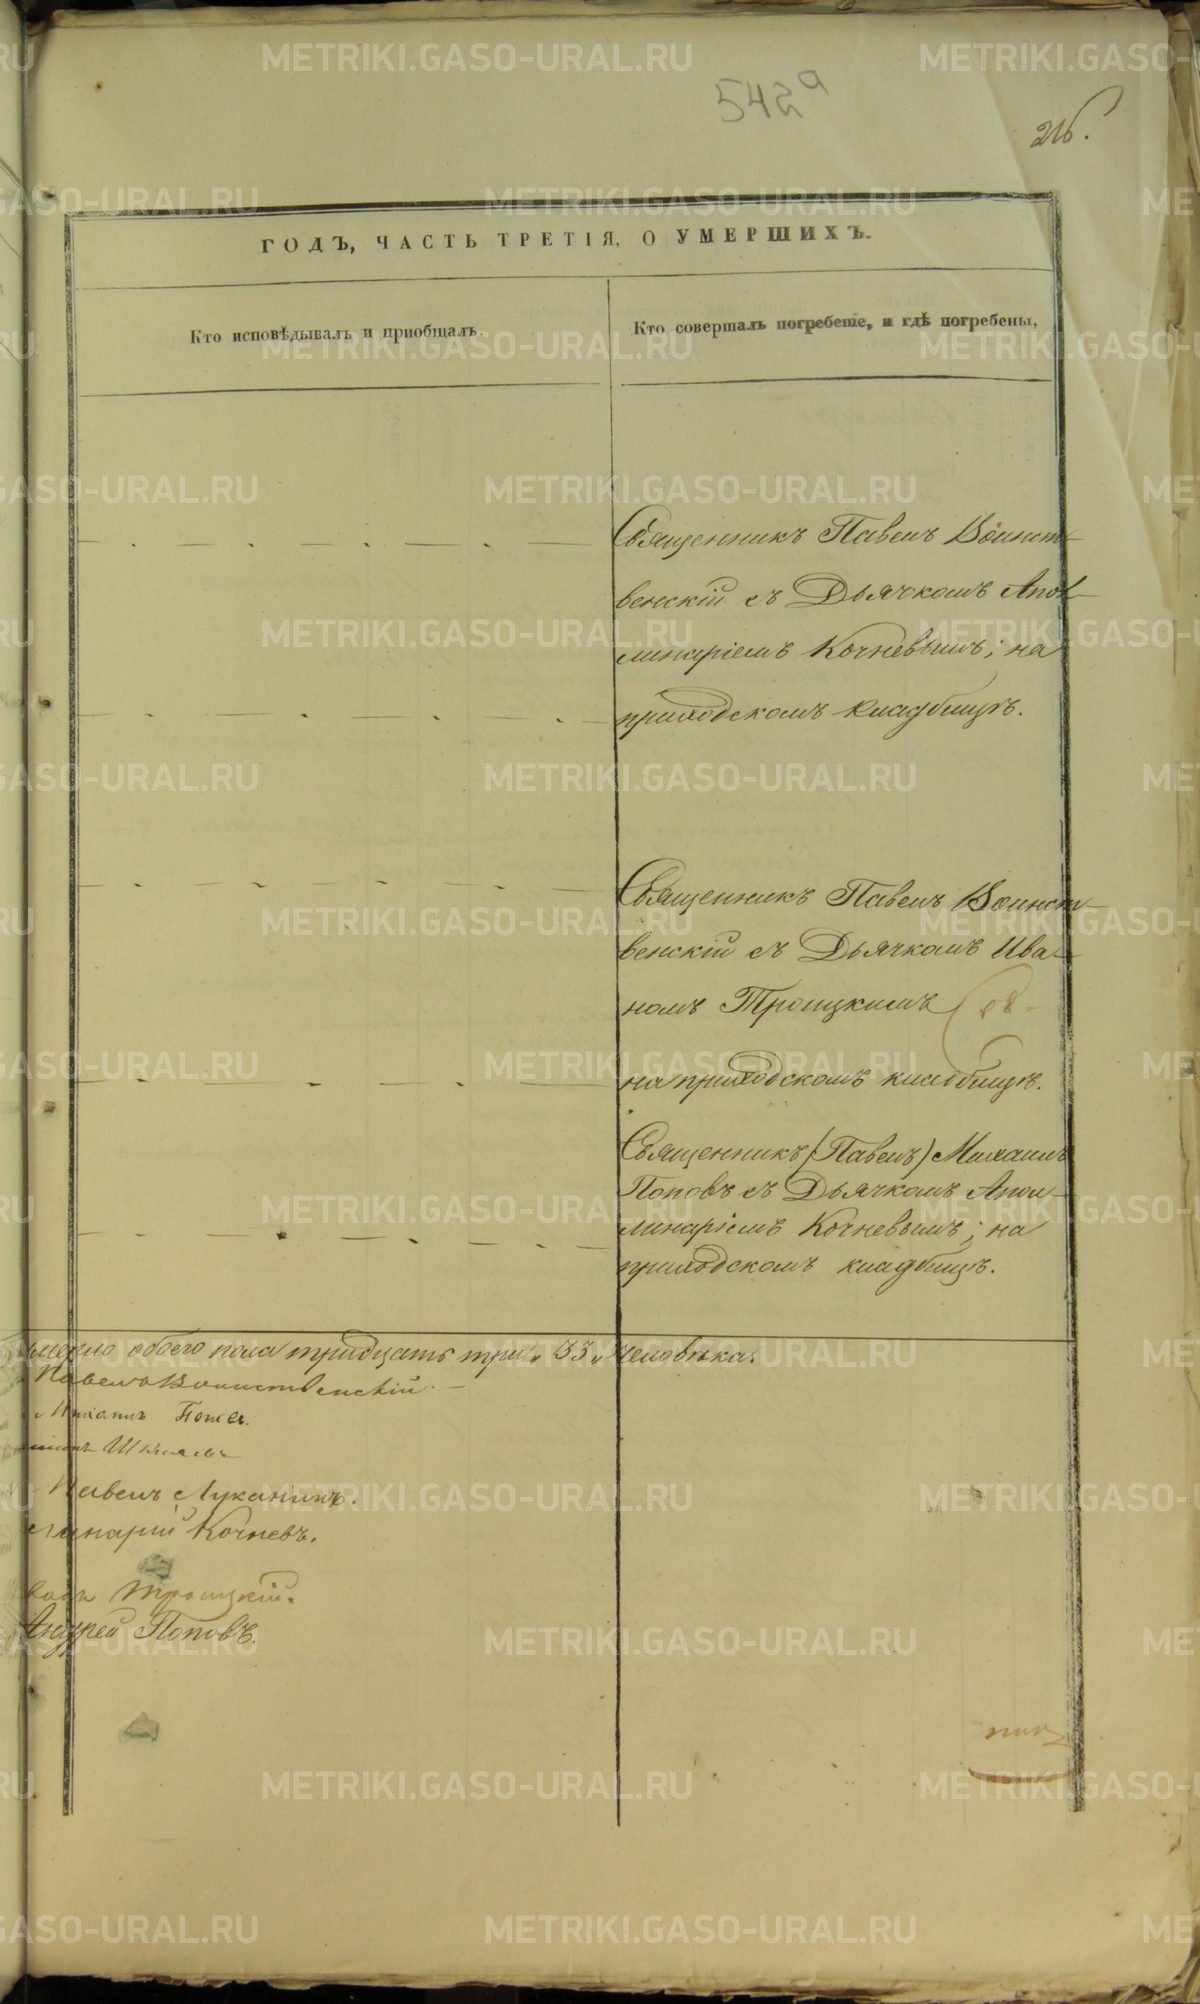 542а
216.
ГОДЪ, ЧАСТЬ ТРЕТІЯ, О УМЕРШИХЪ.
Кто исповѣдывалъ и приобщалъ.
Кто совершалъ погребеніе, и гдѣ погребены,
Священникъ Павелъ Воинст-
венскій съ Дьячкомъ Апол-
линаріемъ Кочневымъ; на
приходскомъ кладбищѣ.
Священникъ Павелъ Воинст-
венскій съ Дьячкомъ Ива-
номъ Троицкимъ
на приходскомъ кладбищѣ.
Священникъ (Павелъ) Михаилъ
Поповъ съ Дьячкомъ Апол-
линаріемъ Кочневымъ; на
приходскомъ кладбищѣ.
умерло обоего пола тридцать три „ 33 „ человѣка.
Павелъ Воинственскій.
Михаилъ
Павелъ Луканинъ.
линарій Кочневъ.
Троицкій.
Андрей Поповъ.
METRIKI.GASO-URAL.RU